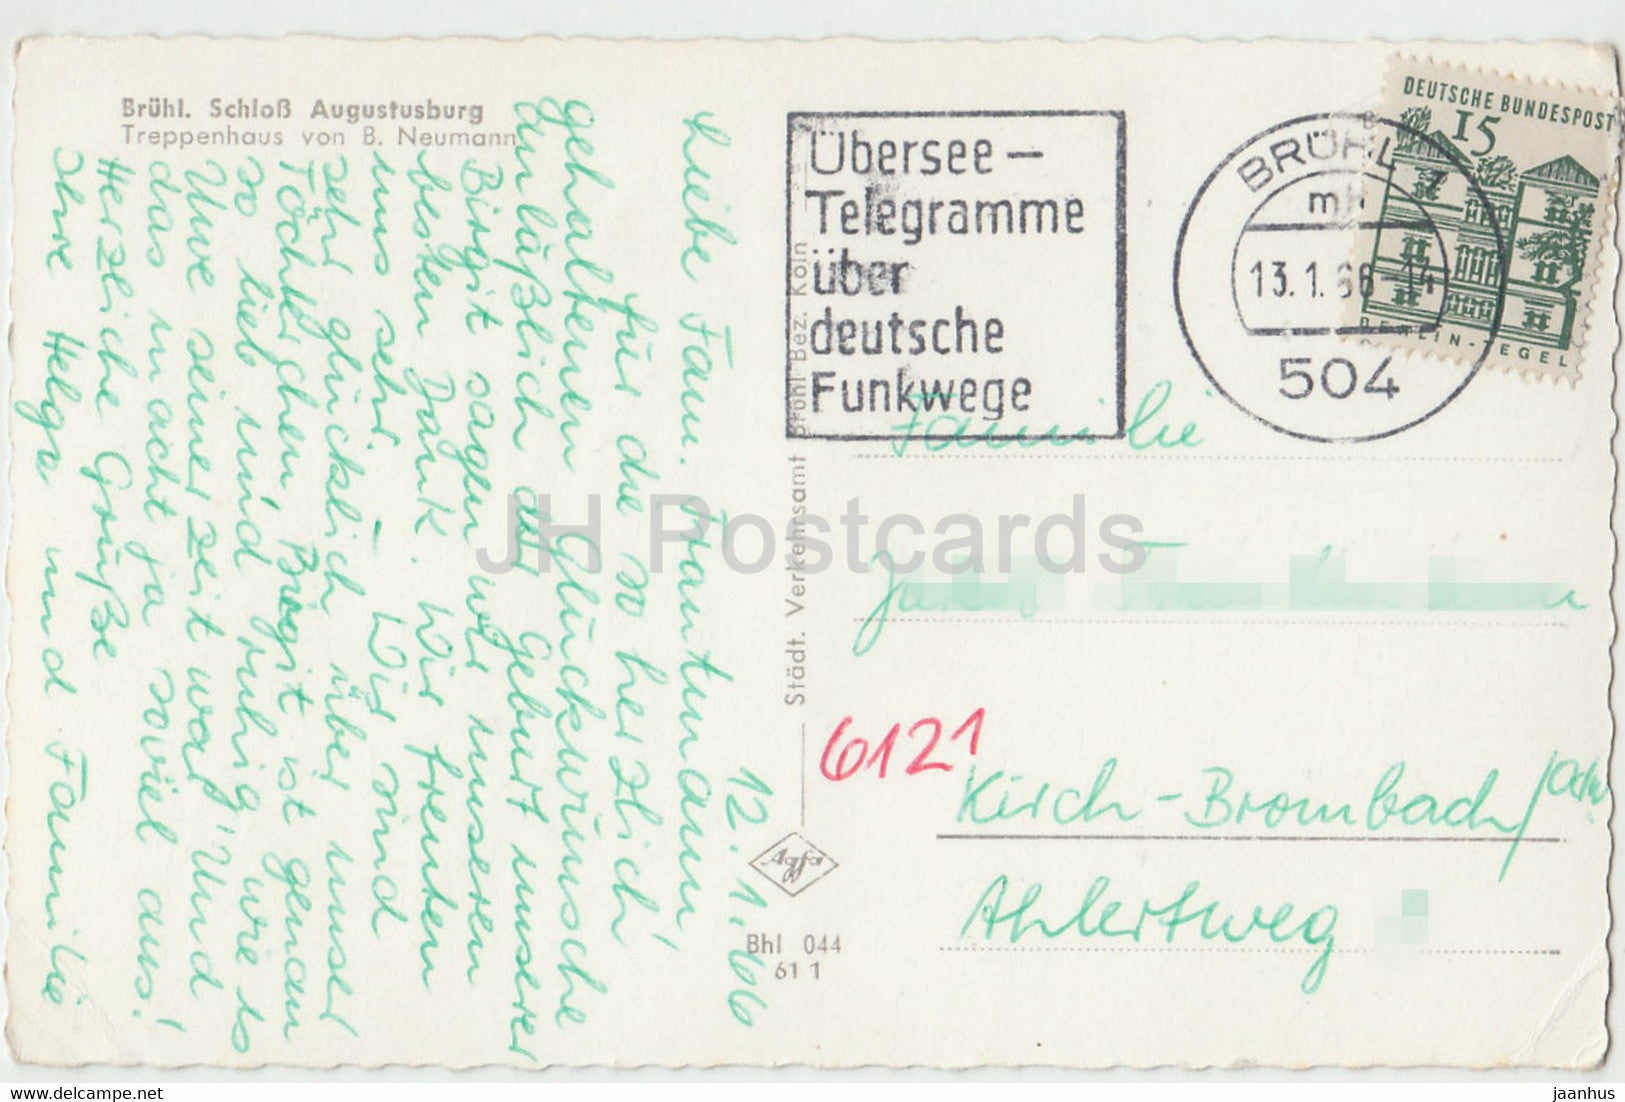 Brühl. Schloß Augustusburg
Treppenhaus von B. Neumann
12. 1. 66
Liebe Fam. Trautmann!
Für die so herzlich
gehaltenen Glückwünsche
anläßlich der Geburt unserer
Birgit sagen wir unseren
besten Dank. Wir freuten
uns sehr – Wir sind
sehr glücklich über unser
Töchterchen Birgit ist genau
so lieb und ruhig wie es
Uwe seiner zeit war! Und
das macht ja soviel aus!
Herzliche Grüße
Ihre Helga und Familie
Städt. Verkehrsamt Brühl Bez. Köln
Agfa
Bhl 044
61 1
Übersee –
Telegramme
über
deutsche
Funkwege
BRÜHL
mh
13.1.66 14
504
DEUTSCHE BUNDESPOST
15
BERLIN-TEGEL
Familie
6121
Kirch-Brombach
Ahlertweg
JH Postcards
www.delcampe.net
jaanhus